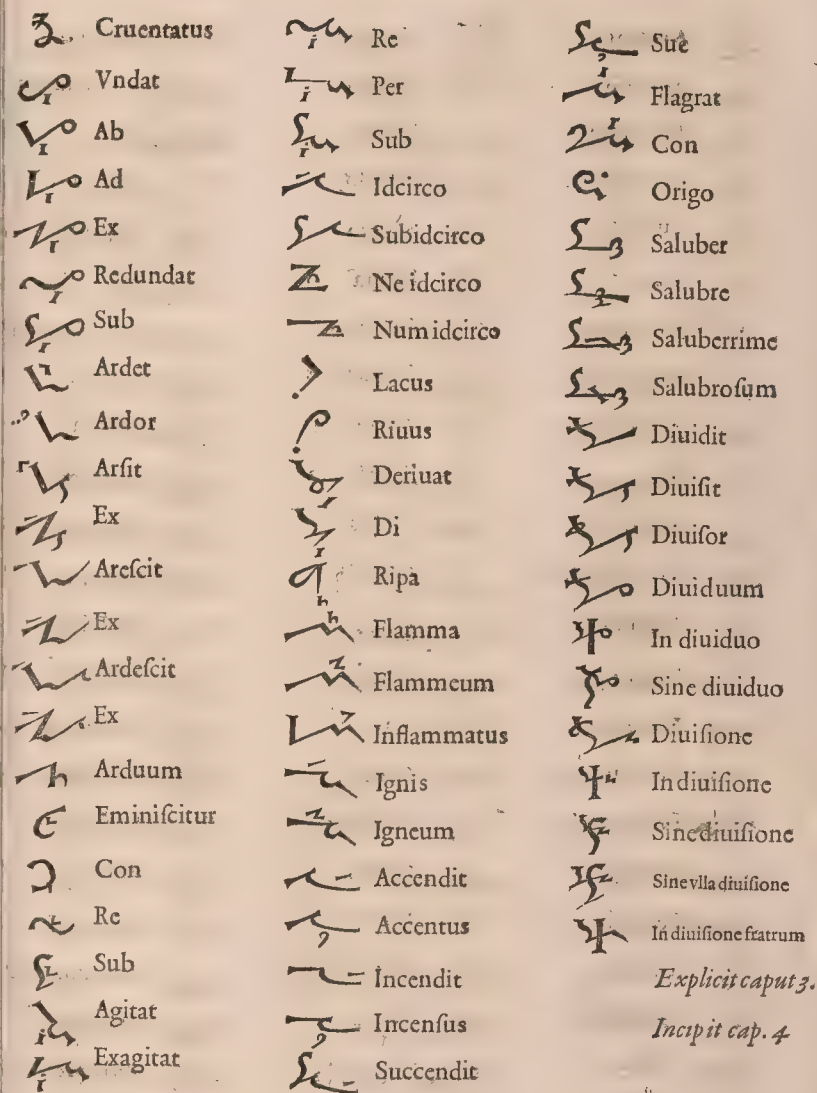 Cruentatus
Vndat
Ab
Ad
Ex
Redundat
Sub
Ardet
Ardor
Arſit
Ex
Areſcit
Ex
Ardeſcit
Ex
Arduum
Eminiſcitur
Con
Re
Sub
Agitat
Exagitat
Re
Per
Sub
Idcirco
Subidcirco
Ne idcirco
Num idcirco
Lacus
Riuus
Deriuat
Di
Ripa
Flamma
Flammeum
Inflammatus
Ignis
Igneum
Accendit
Accentus
Incendit
Incenſus
Succendit
Sue
Flagrat
Con
Origo
Saluber
Salubre
Saluberrime
Salubroſum
Diuidit
Diuiſit
Diuiſor
Diuiduum
In diuiduo
Sine diuiduo
Diuiſione
In diuiſione
Sine diuiſione
Sine vlla diuiſione
In diuiſione fratrum
Explicit caput 3.
Incipit cap. 4